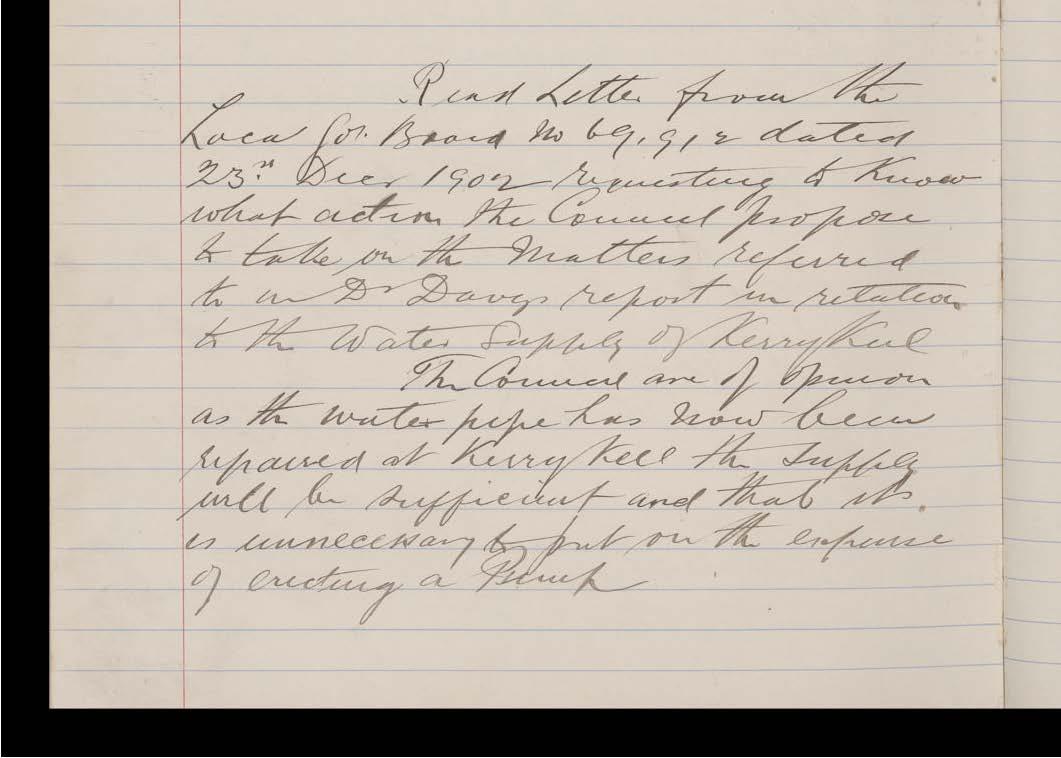 Read Letter from the
Local Gov. Board No 69,912 dated
23rd Decr 1902 requesting to Know
what action the Council propose
to take on the Matters referred
to in Dr Davys report in relation
to the Water Supply of Kerrykeel
The Council are of opinion
as the water pipe has now been
repaired at Kerrykeel the supply
will be sufficient and that it
is unnecessary to put on the expense
of erecting a Pump